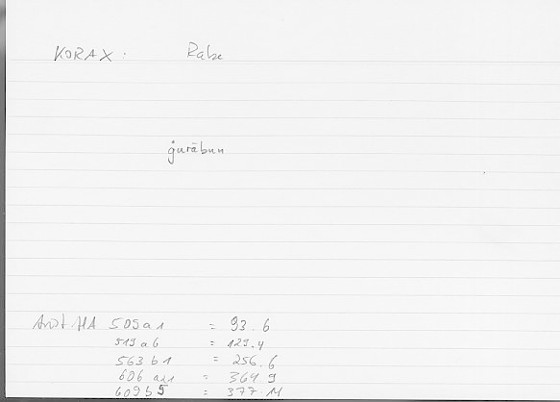 KORAX. Rabe
ġurābun
Arist. HA 509a1 = 93.6
519a6 = 129.4
563b1 = 256.6
606a21 = 364 9
609b5 = 377.14